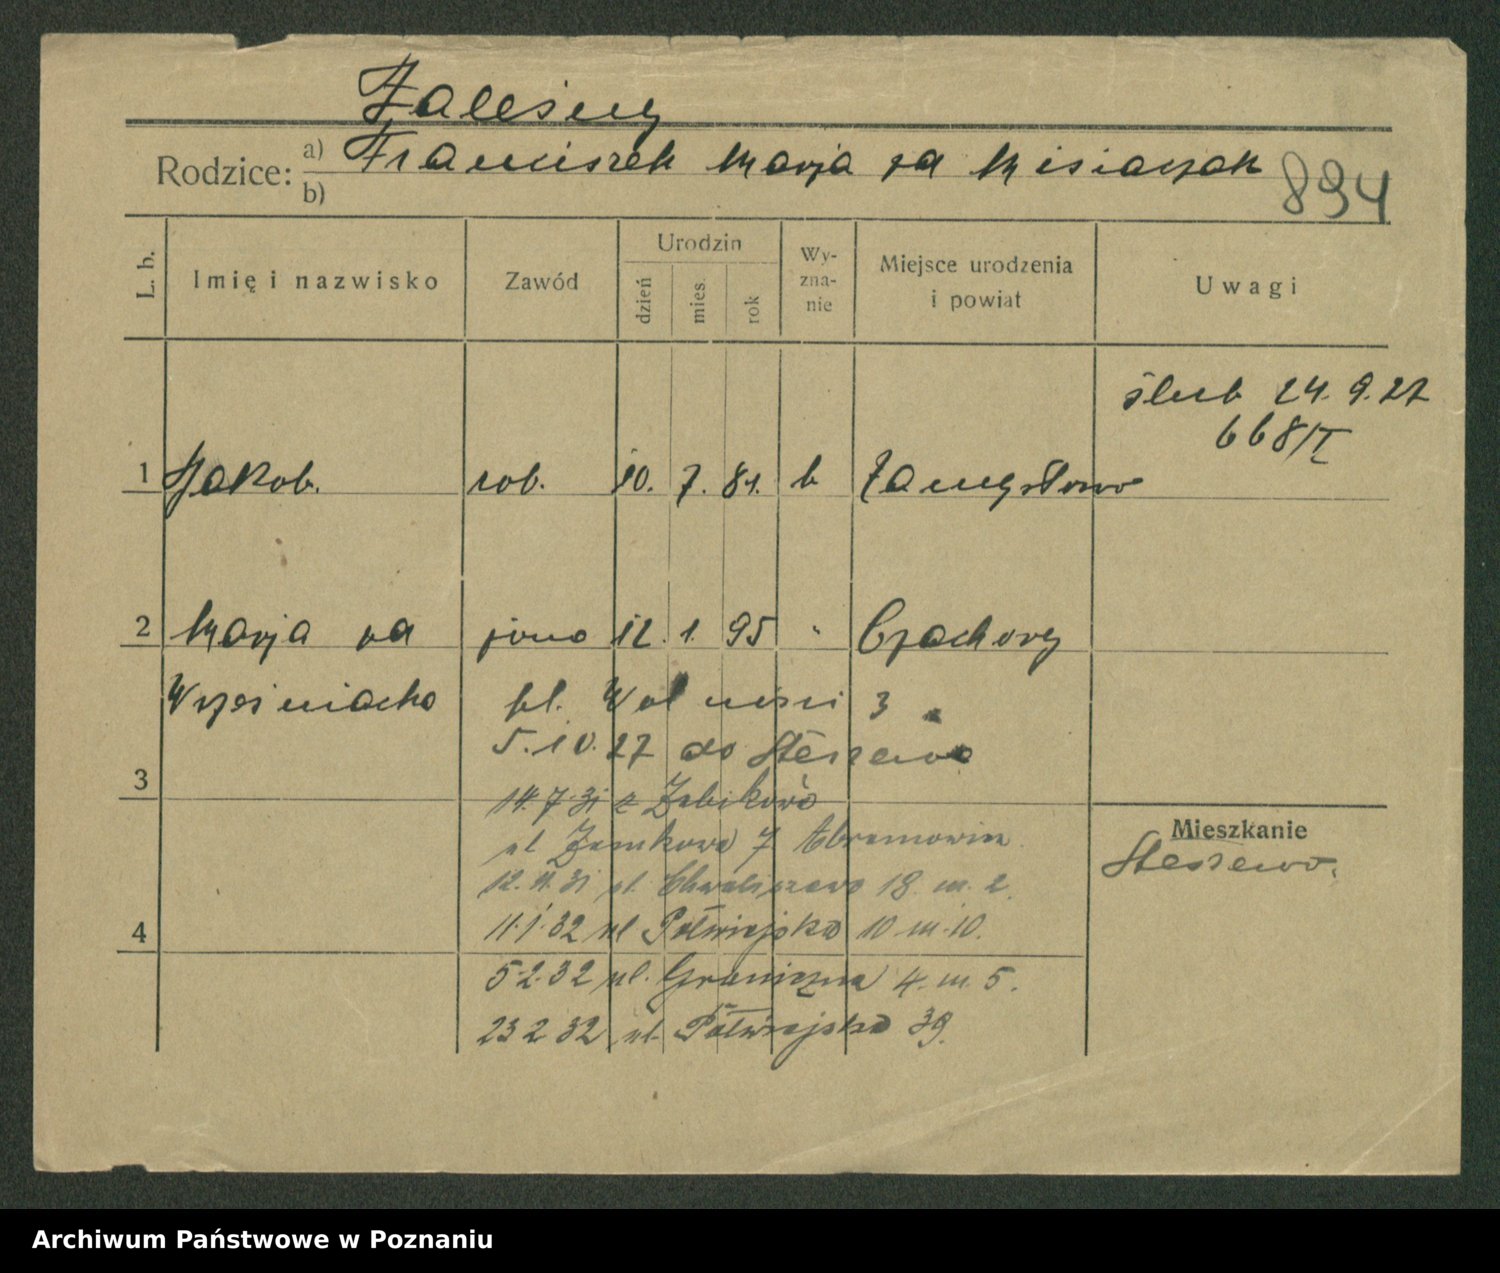 Zaleśny
Rodzice: a) Franciszek Marja za Misiaczak
b)
894
L. b.
Imię i nazwisko
Zawód
Urodzin
dzień
mies.
rok
Wy-
zna-
nie
Miejsce urodzenia
i powiat
Uwagi
ślub 24. 9. 27
668/I
1 Jakob. rob. 10. 7. 81. k Zamysłowo
2 Marja za żona 12. 1. 95 " Czachory
Wrześniacka pl. Wolności 3
5. 10. 27 do Stęszewa
3
14. 7. 31 z Żabikowo
ul Zamkowa 7 Abramowicz
12. 11. 31 ul. Chwaliszewo 18 m. 2.
4
11. 1. 32 ul Półwiejska 10 m. 10.
5. 2. 32 ul. Graniczna 4. m. 5.
23 2 32 ul. Półwiejska 39.
Mieszkanie
Stęszewo.
Archiwum Państwowe w Poznaniu